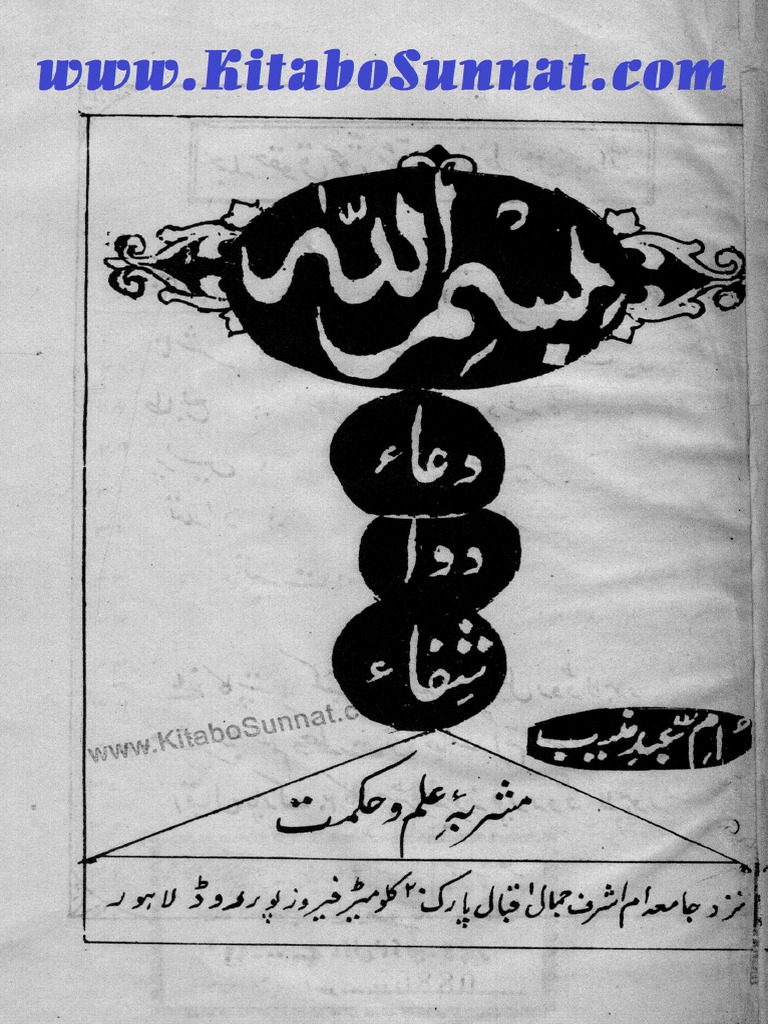 www.KitaboSunnat.com
بسم الله
دعاء
دوا
شفاء
www.KitaboSunnat.c
اُمِّ عبدِ منیب
مشربۂِ علم و حکمت
نزد جامعہ ام اشرف جمال اقبال پارک ۲۰ کلو میٹر فیروز پور روڈ لاہور